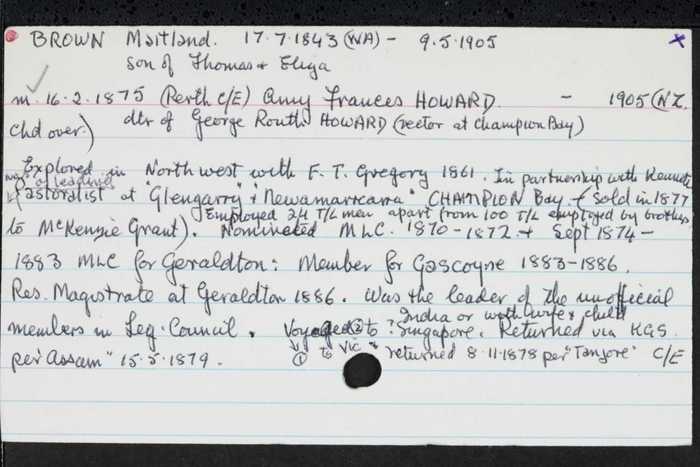 BROWN Maitland. 17.7.1843 (WA) - 9.5.1905
son of Thomas + Eliza
m. 16.2.1875 (Perth C/E) Amy Frances HOWARD. - 1905 (NZ.
Chd over.) dtr of George Routh HOWARD (rector at Champion Bay)
Explored in North west with F. T. Gregory 1861. In partnership with Kenneth
mag of leading
Pastoralist at "Glengarry" + "Newamarracarra" CHAMPION Bay. (Sold in 1877
Employed 24 T/L men apart from 100 T/L employed by brothers
to McKenzie Grant). Nominated MLC. 1870-1872 + Sept 1874-
1883 MLC for Geraldton: Member for Gascoyne 1883-1886.
Res. Magistrate at Geraldton 1886. Was the leader of the unofficial
India or with wife + child
members in Leg. Council. Voyaged ② to ? Singapore. Returned via KGS
① to Vic + returned 8.11.1878 per "Tanjore" C/E
per "Assam" 15.5.1879.